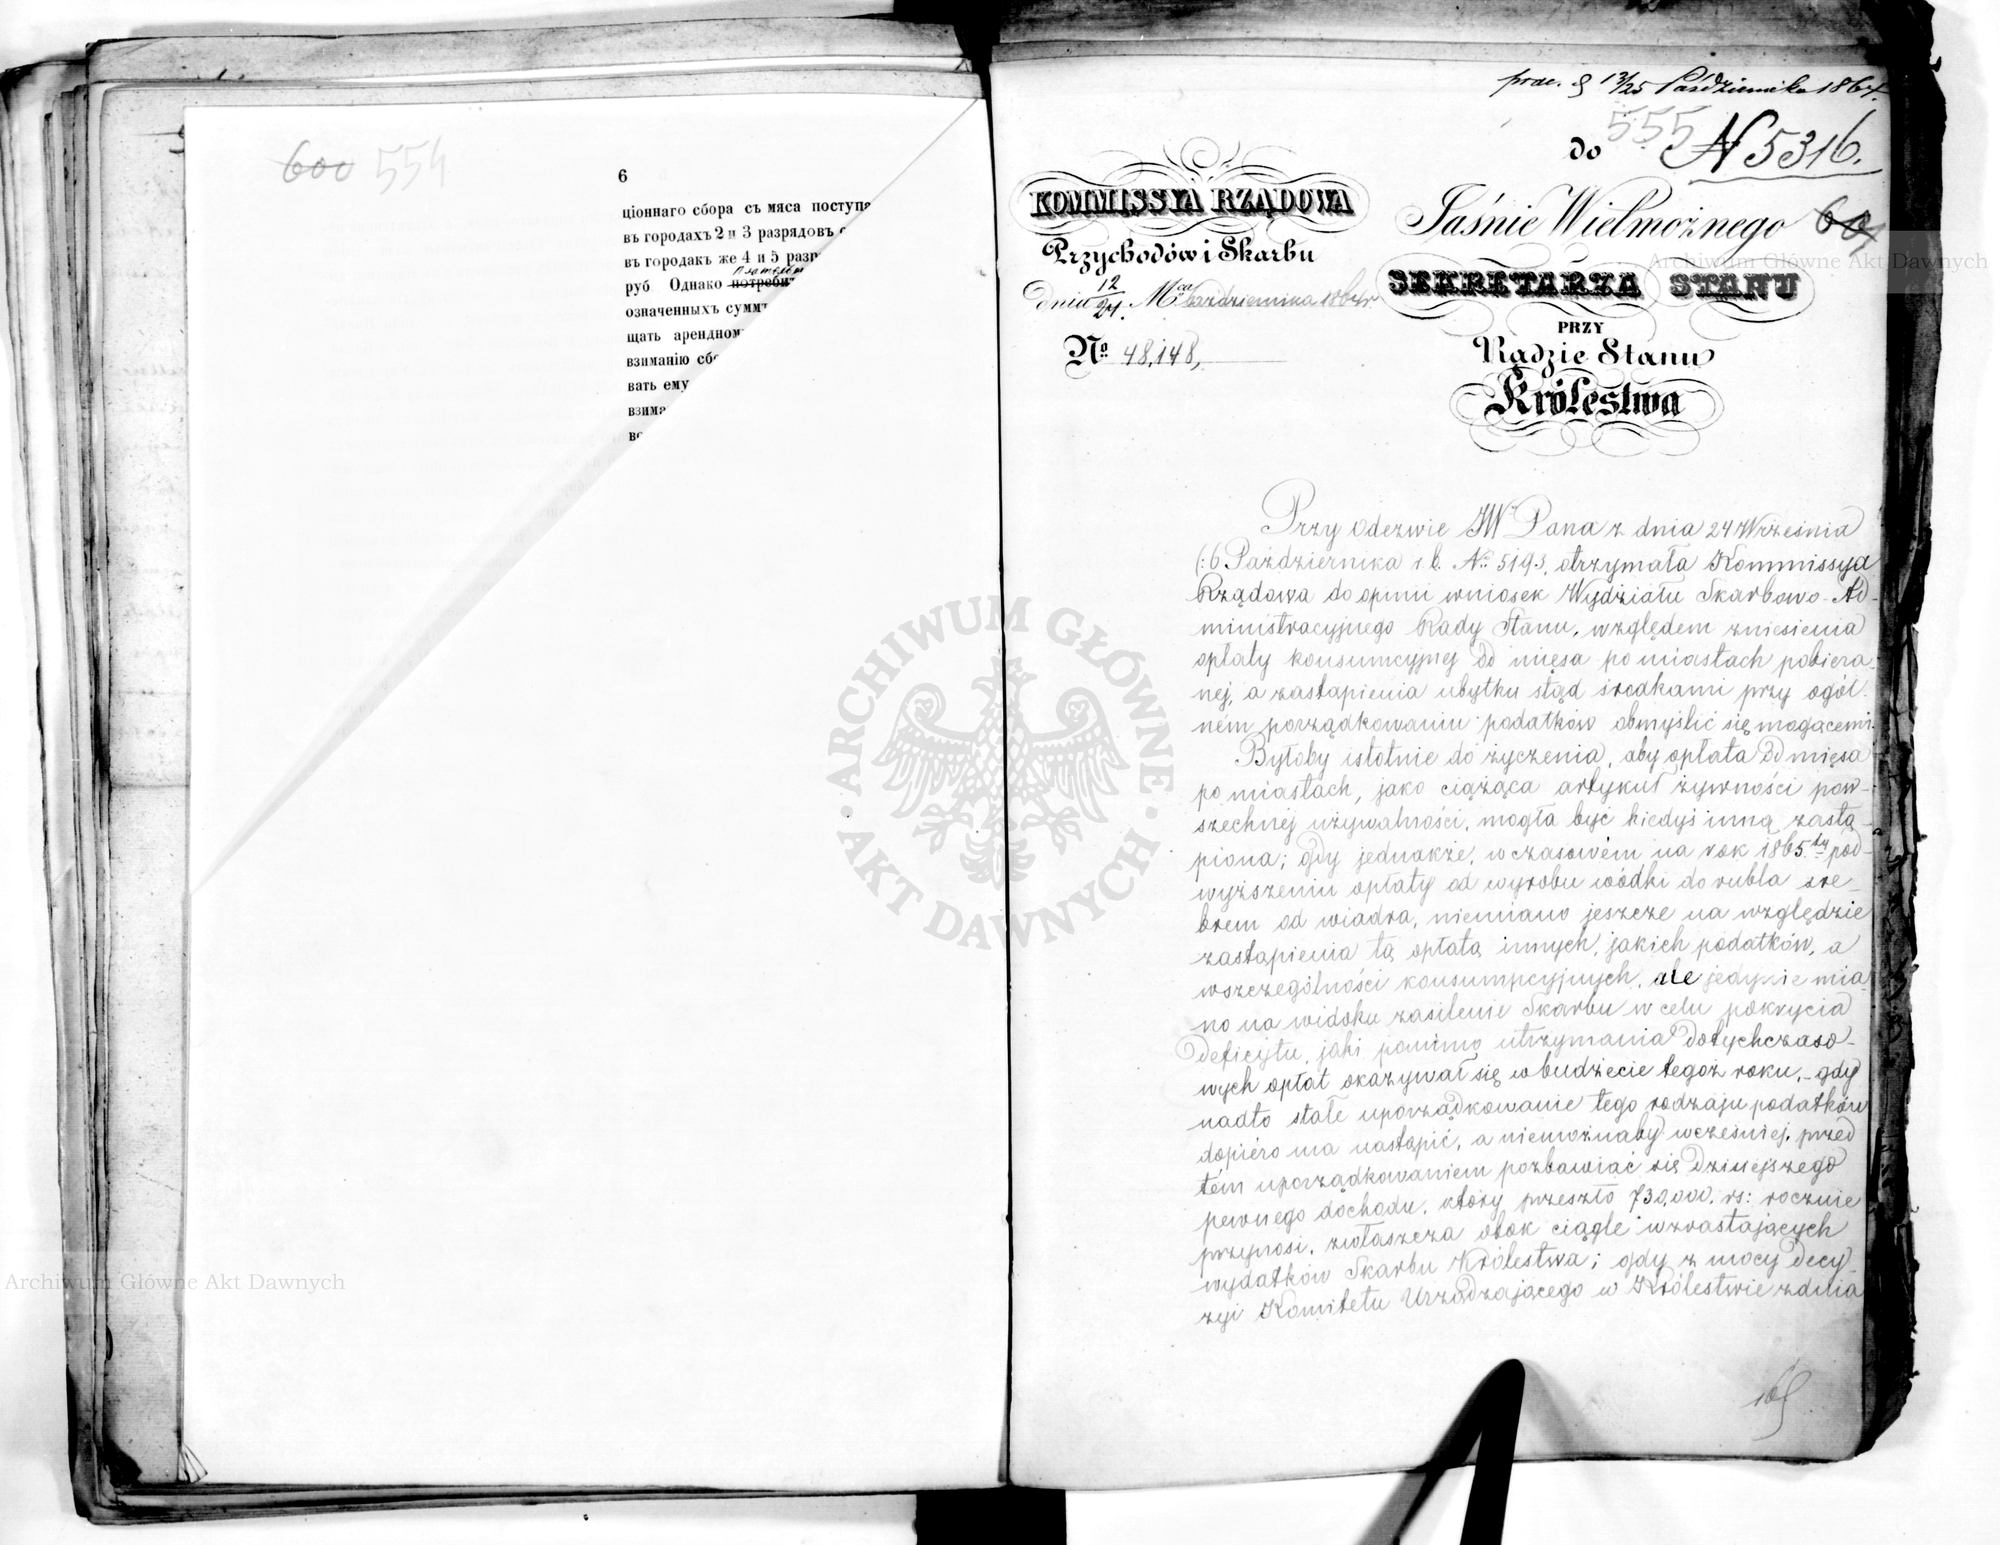 600 554
6
ціоннаго сбора съ мяса поступа
въ городахъ 2 и 3 разрядовъ
въ городахъ же 4 и 5 разр
руб Однако потреби
означенныхъ суммъ
щать арендном
взиманію сбо
вать ему
взима
во
prae. d 13/25 Października 1864.
555
do N 5316.
KOMMISSYA RZĄDOWA
Przychodów i Skarbu
dnia 12/24. Mca Października 1864 r
No 48,148,
Jaśnie Wielmożnego
601
SEKRETARZA STANU
PRZY
Radzie Stanu
Królestwa
Przy odezwie JW Pana z dnia 24 Września
(:6 Października r. b. No 5193, otrzymała Kommissya
Rządowa do opinii wniosek Wydziału Skarbowo-Ad-
ministracyjnego Rady Stanu, względem zniesienia
opłaty konsumcyjnej od mięsa po miastach pobiera-
nej, a zastąpienia ubytku stąd środkami przy ogól-
ném porządkowaniu podatków obmyślić się mogącemi.
Byłoby istotnie do życzenia, aby opłata od mięsa
po miastach, jako ciążąca artykuł żywności pow-
szechnej używalności, mogła być kiedyś inną zastą-
piona; gdy jednakże, w czasowém na rok 1865ty pod-
wyższeniu opłaty od wyrobu wódki do rubla sre-
brem od wiadra, niemiano jeszcze na względzie
zastąpienia tą opłatą innych, jakich podatków, a
wszczególności konsumpcyjnych, ale jedynie mia-
no na widoku zasilenie Skarbu w celu pokrycia
deficytu, jaki pomimo utrzymania dotychczaso-
wych opłat okazywał się w budżecie tegoż roku,- gdy
nadto stałe uporządkowanie tego rodzaju podatków
dopiéro ma nastąpić, a niemożnaby wcześniej, przed
tem uporządkowaniem pozbawiać się dzisiejszego
pewnego dochodu, który przeszło 730,000. rs: rocznie
przynosi, zwłaszcza obok ciągle wzrastających
wydatków Skarbu Królestwa; gdy z mocy decy-
zyi Komitetu Urządzającego w Królestwie z dnia
ARCHIWUM GŁÓWNE AKT DAWNYCH
Archiwum Główne Akt Dawnych
Archiwum Główne Akt Dawnych